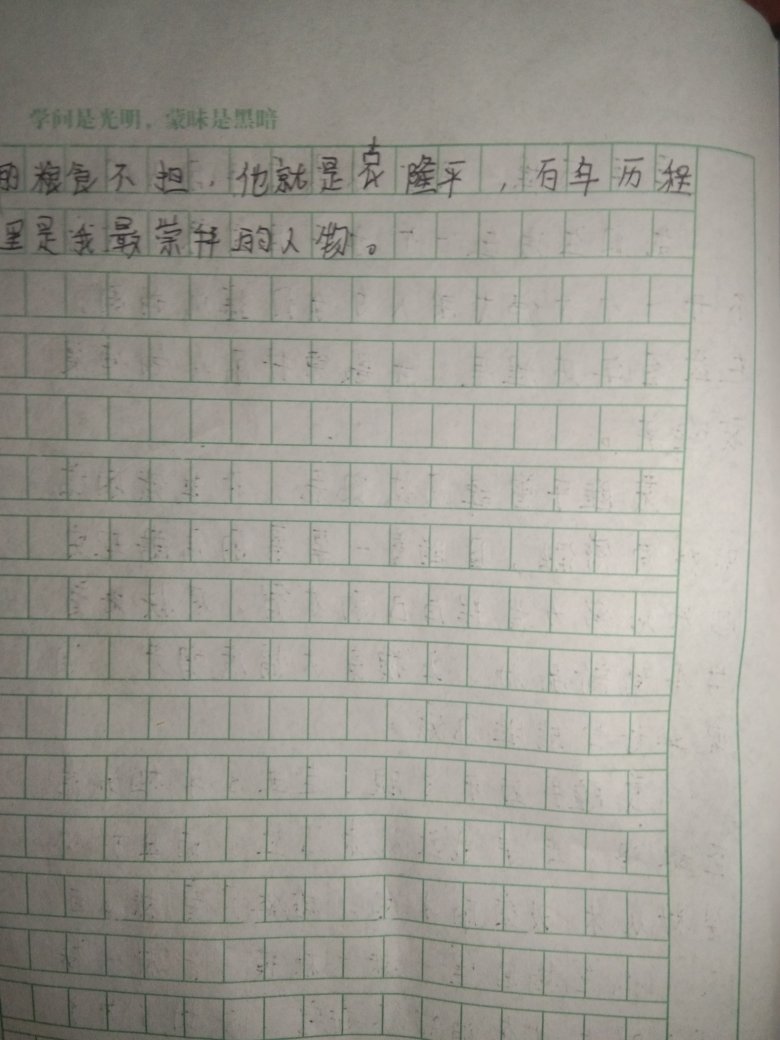 学问是光明，蒙昧是黑暗
的粮食不担，他就是袁隆平，百年历程
里是我最崇拜的人物。